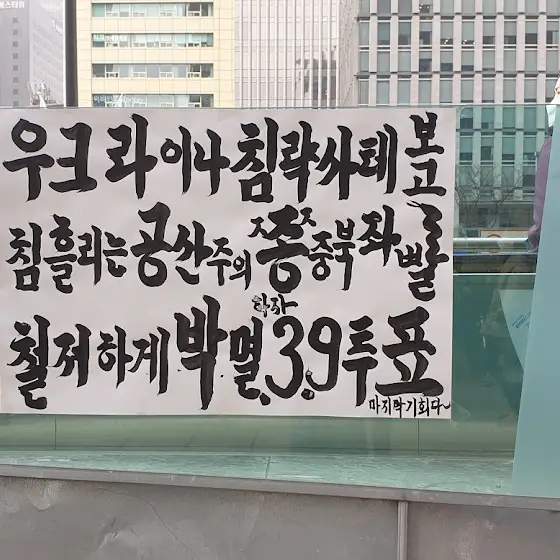 우크라이나 침략사태 보고
침 흘리는 공산주의 쫑중북 좌빨
철저하게 박멸하자 3.9 투표
마지막 기회다~